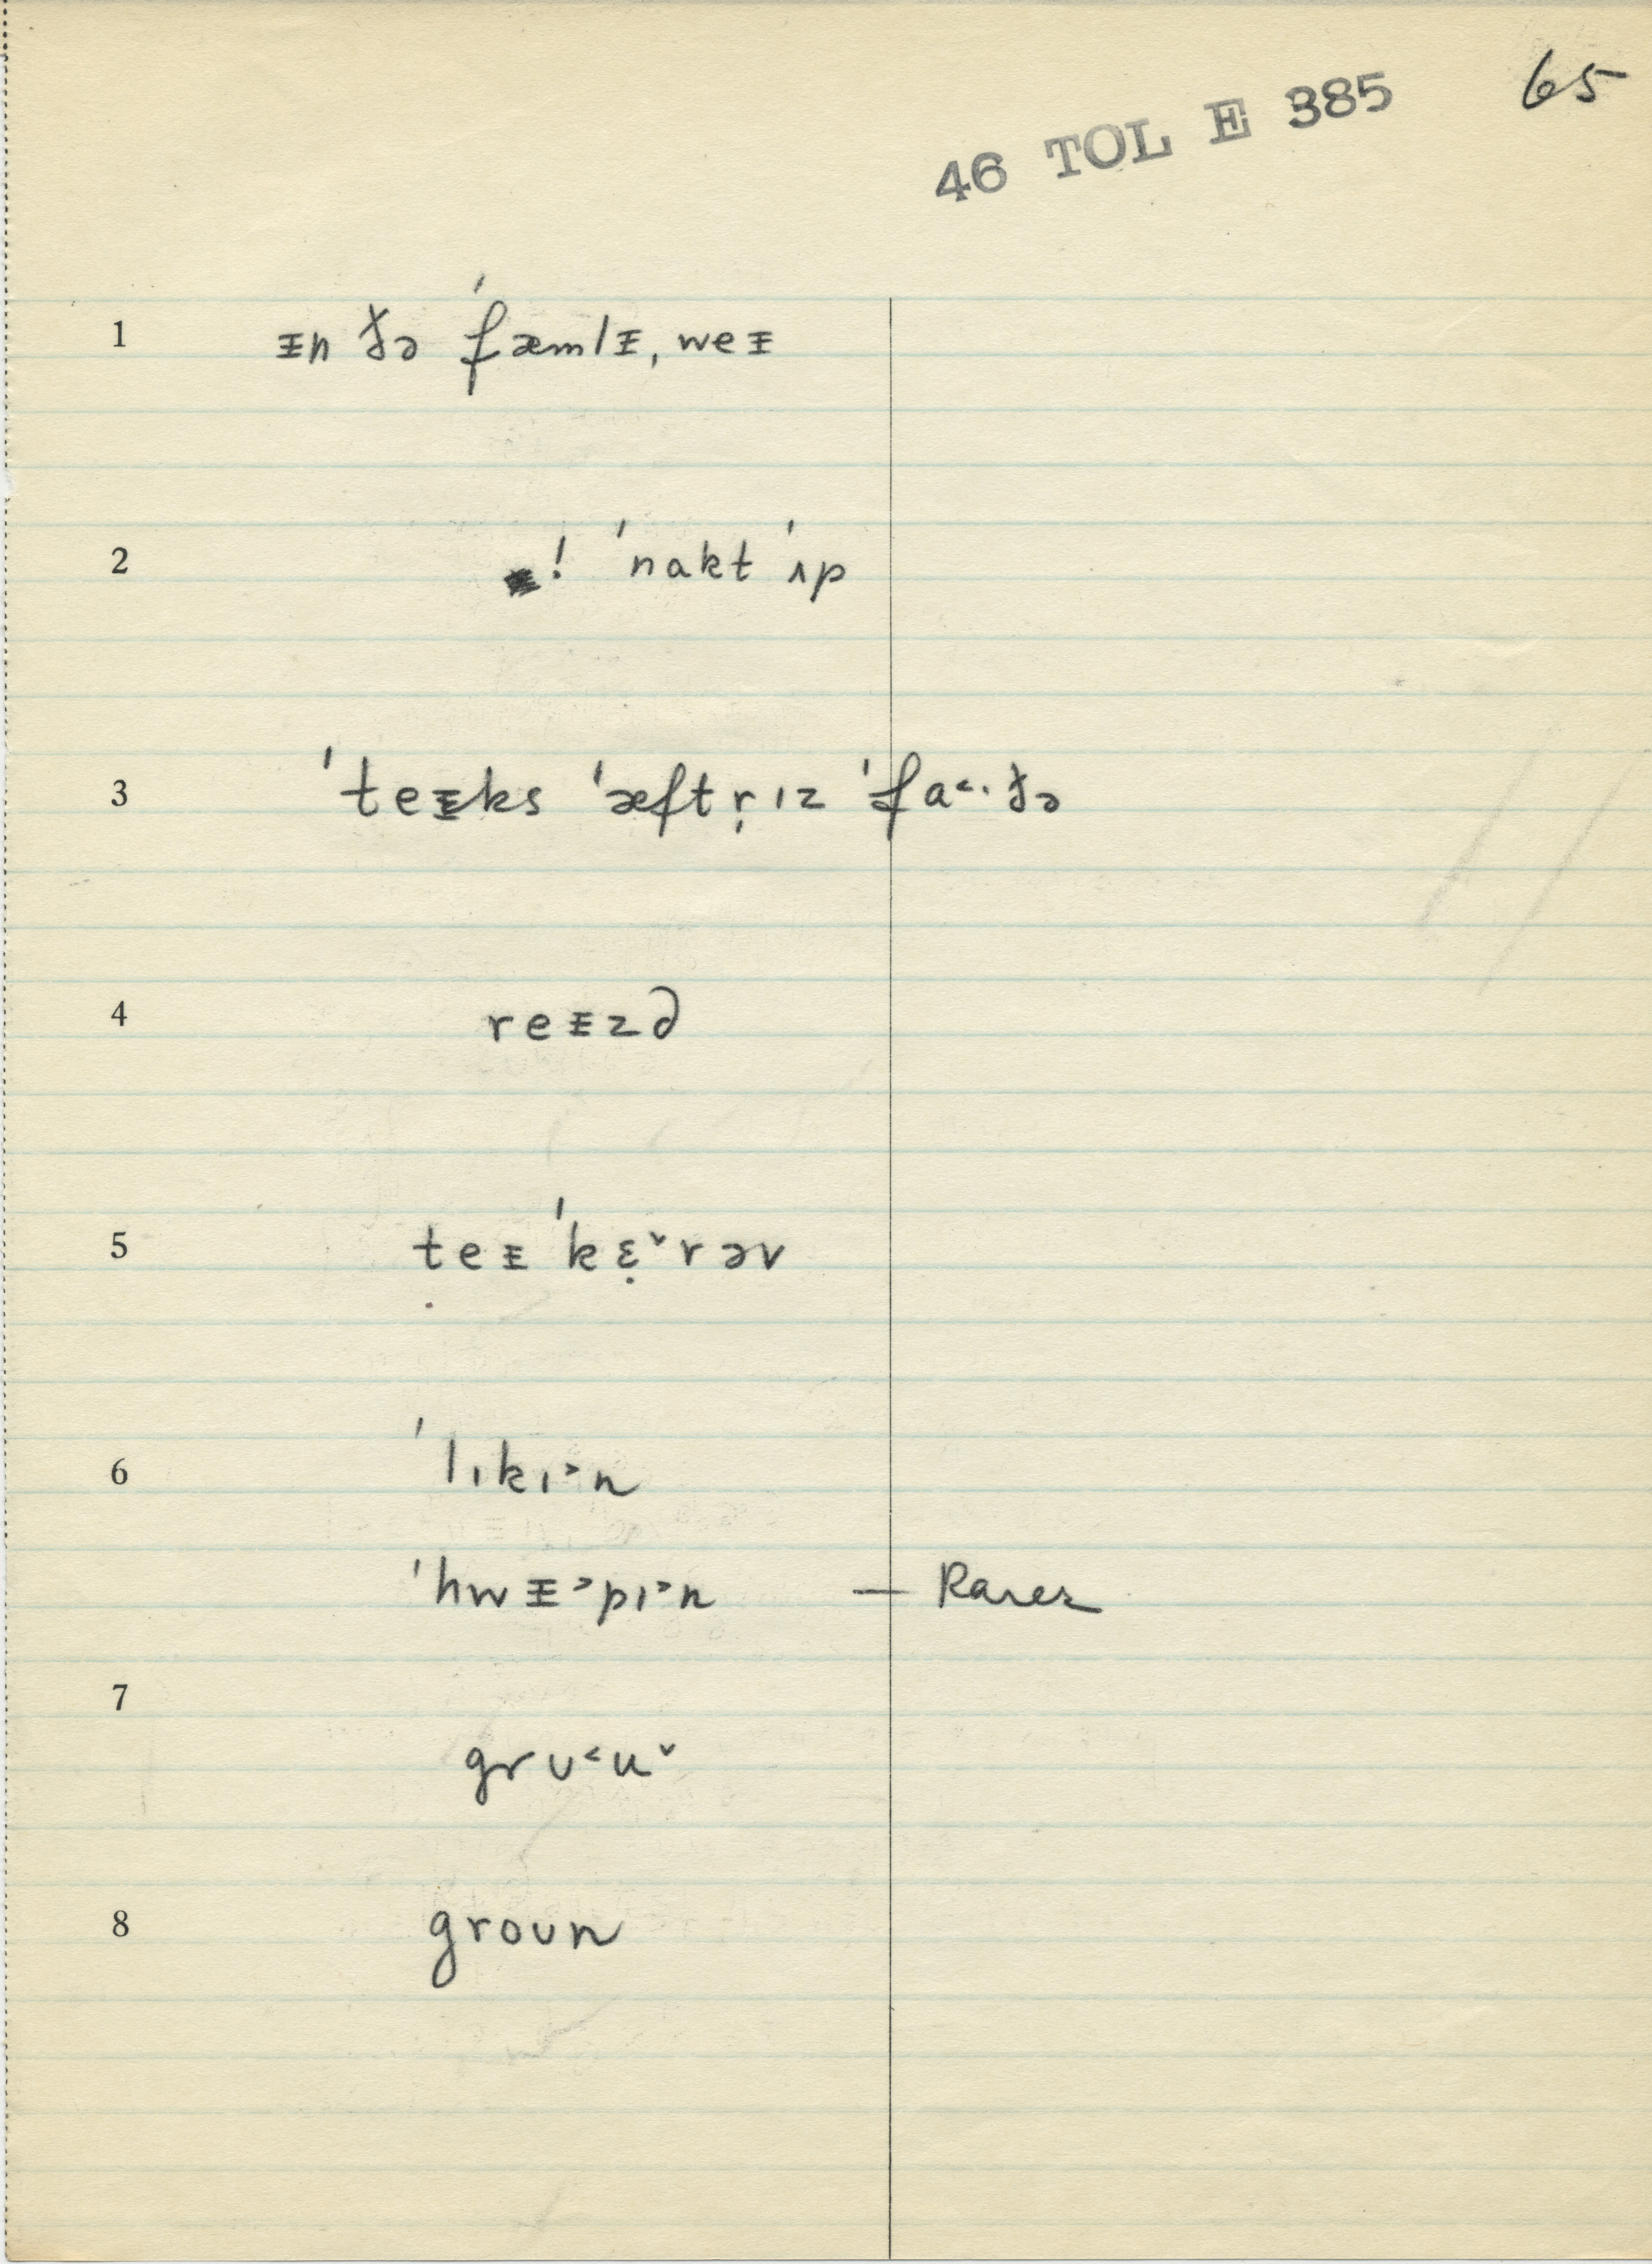 46 TOL E 385 65
1 ᵻn ðə ˈfæmlᵻ, weᵻ
2 ! ˈnakt ˈʌp
3 ˈteᵻks ˈæftr̩ ɪz ˈfa˂·ðə
4 reᵻz∂
5 teᵻ ˈkɛ̣˅rəv
6 ˈlɪkɪ˃n
ˈhwᵻ˃pɪ˃n — Rarer
7
grʊ˂u˅
8 groʊn